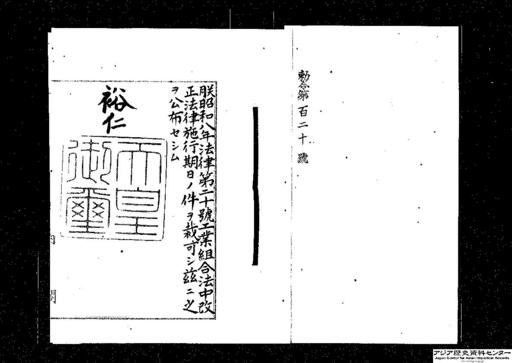 勅令第百二十號
朕昭和八年法律第二十號工業組合法中改
正法律施行期日ノ件ヲ裁可シ茲ニ之
ヲ公布セシム
裕仁
天皇
御璽
アジア歴史資料センター
Japan Center for Asian Historical Records